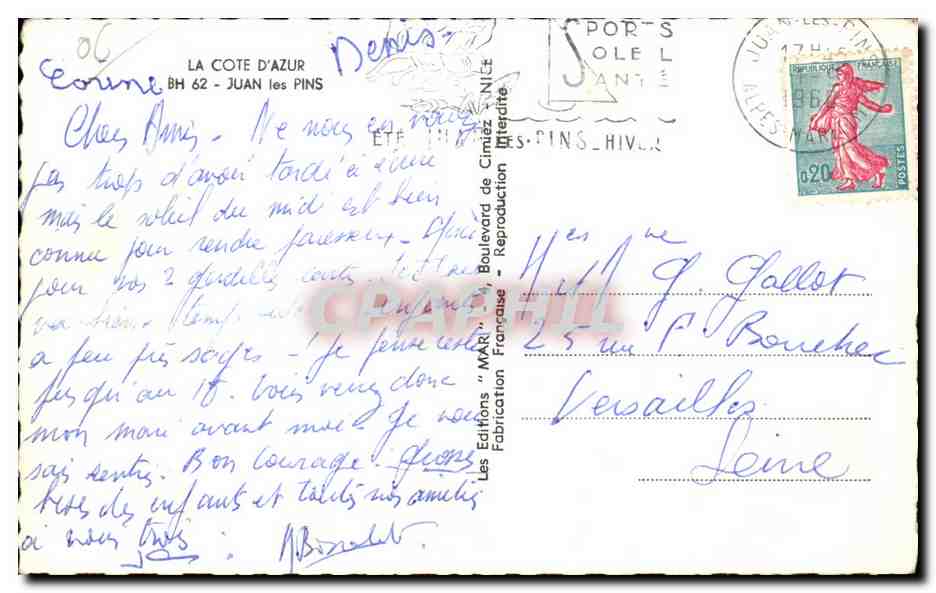 06
Denis -
LA COTE D'AZUR
Corinne
BH 62 - JUAN les PINS
Chers Amis - Ne nous en voulez
pas trop d'avoir tardé à écrire
mais le soleil du midi est bien
connu pour rendre paresseux - Merci
pour vos 2 gentilles cartes.
temps enfants
à peu près sages - Je pense rester
jusqu'au 18. Vous verrez donc
mon mari avant moi - Je vous
sais rentrés. Bon courage. Grosses
bises des enfants et toutes nos amitiés
à vous trois.
Les Editions "MAR" 4, Boulevard de Cimiez - NICE
Fabrication Française - Reproduction Interdite
SPORTS
SOLEIL
SANTÉ
ÉTÉ JUAN-LES-PINS HIVER
JUAN-LES-PINS
17H
196
ALPES-MARITIMES
REPUBLIQUE FRANÇAISE
0,20
POSTES
G. Gallot
25 rue P. Boucher
Versailles
Seine
CPAPHIL